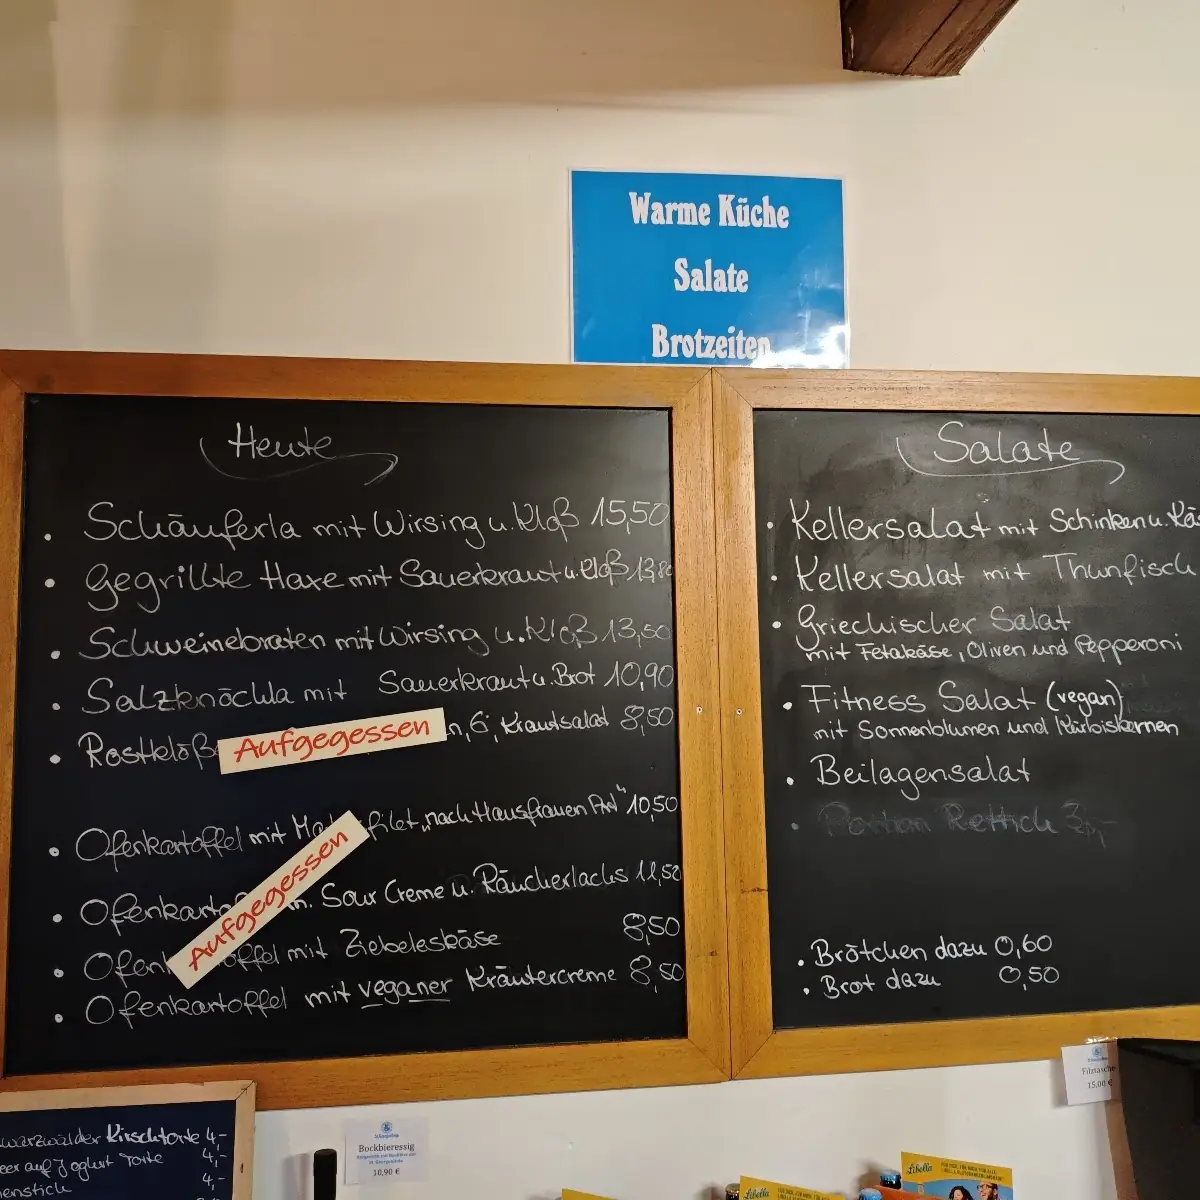 Warme Küche
Salate
Brotzeiten
Heute
• Schäuferla mit Wirsing u. Kloß 15,50
• Gegrillte Haxe mit Sauerkraut u. Kloß 13,80
• Schweinebraten mit Wirsing u. Kloß 13,50
• Salzknöchla mit Sauerkraut u. Brot 10,90
• Rostklöß Aufgegessen n, 6, Krautsalat 8,50
• Ofenkartoffel mit filet „nach Hausfrauen Art" 10,50
Aufgegessen
• Ofenkarto m. Sour Creme u. Räucherlachs 11,50
• Ofenk offel mit Ziebeleskäse 8,50
• Ofenkartoffel mit veganer Kräutercreme 8,50
Salate
• Kellersalat mit Schinken u. Käs
• Kellersalat mit Thunfisch
• Griechischer Salat
mit Fetakäse, Oliven und Pepperoni
• Fitness Salat (vegan)
mit Sonnenblumen und Kürbiskernen
• Beilagensalat
• Portion Rettich 3,-
• Brötchen dazu 0,60
• Brot dazu 0,50
warzwälder Kirschtorte 4,-
eer auf Joghurt Torte 4,-
enstich 4,-
Bockbieressig
10,90 €
Filztasche
15,00 €
Libella
Libella